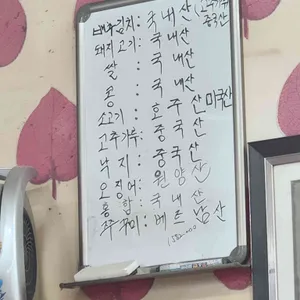 배추김치: 국내산 (고추가루 중국산
돼지고기: 국내산
쌀: 국내산
콩: 국내산
소고기: 호주산 미국산
고추가루: 중국산
낙지: 중국산
오징어: 원양산
홍합: 국내산
쭈꾸미: 베트남산